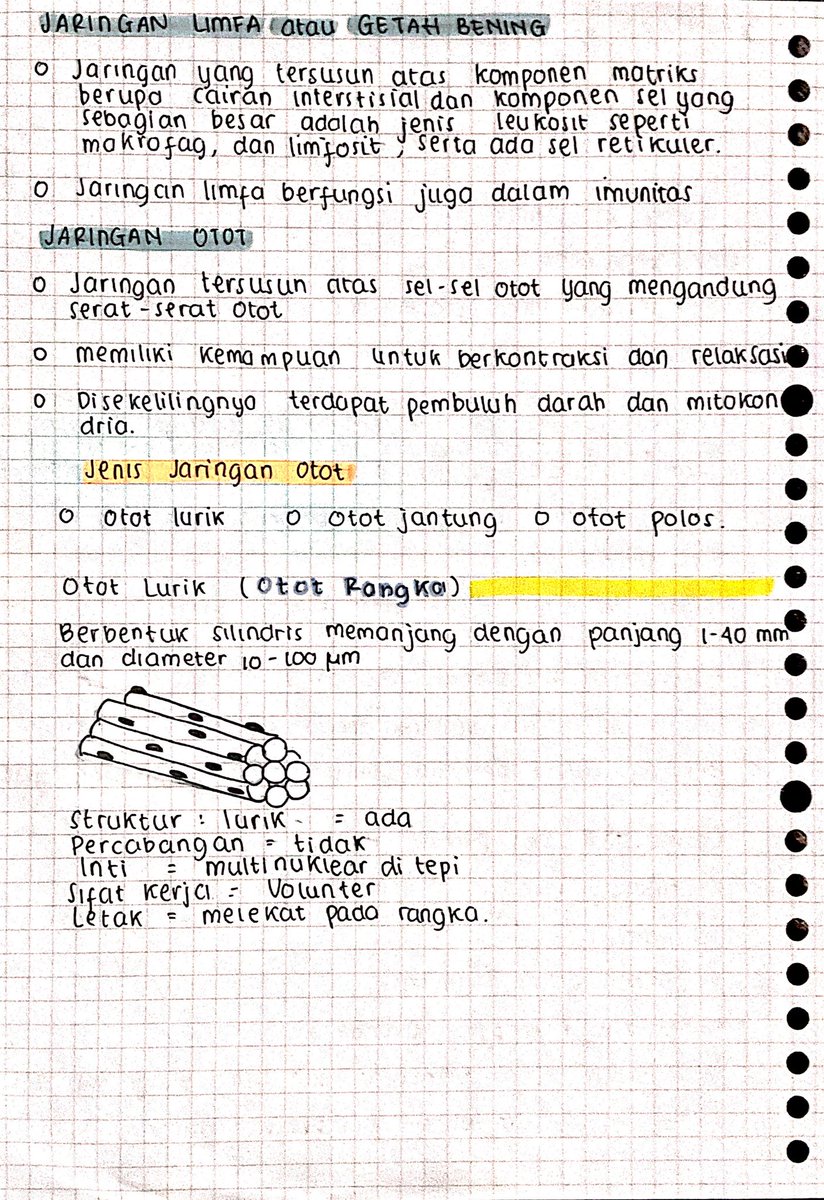 JARINGAN LIMFA atau GETAH BENING
o Jaringan yang tersusun atas komponen matriks
berupa cairan interstisial dan komponen sel yang
sebagian besar adalah jenis leukosit seperti
makrofag, dan limfosit, serta ada sel retikuler.
o Jaringan limfa berfungsi juga dalam imunitas
JARINGAN OTOT
o Jaringan tersusun atas sel-sel otot yang mengandung
serat-serat otot
o memiliki kemampuan untuk berkontraksi dan relaksasi
o Disekelilingnya terdapat pembuluh darah dan mitokon
dria.
Jenis Jaringan Otot
o Otot lurik o Otot jantung o otot polos.
Otot Lurik (Otot Rangka)
Berbentuk silindris memanjang dengan panjang 1-40 mm
dan diameter 10-100 µm
Struktur : lurik - = ada
Percabangan = tidak
Inti = multinuklear di tepi
Sifat kerja = Volunter
Letak = melekat pada rangka.